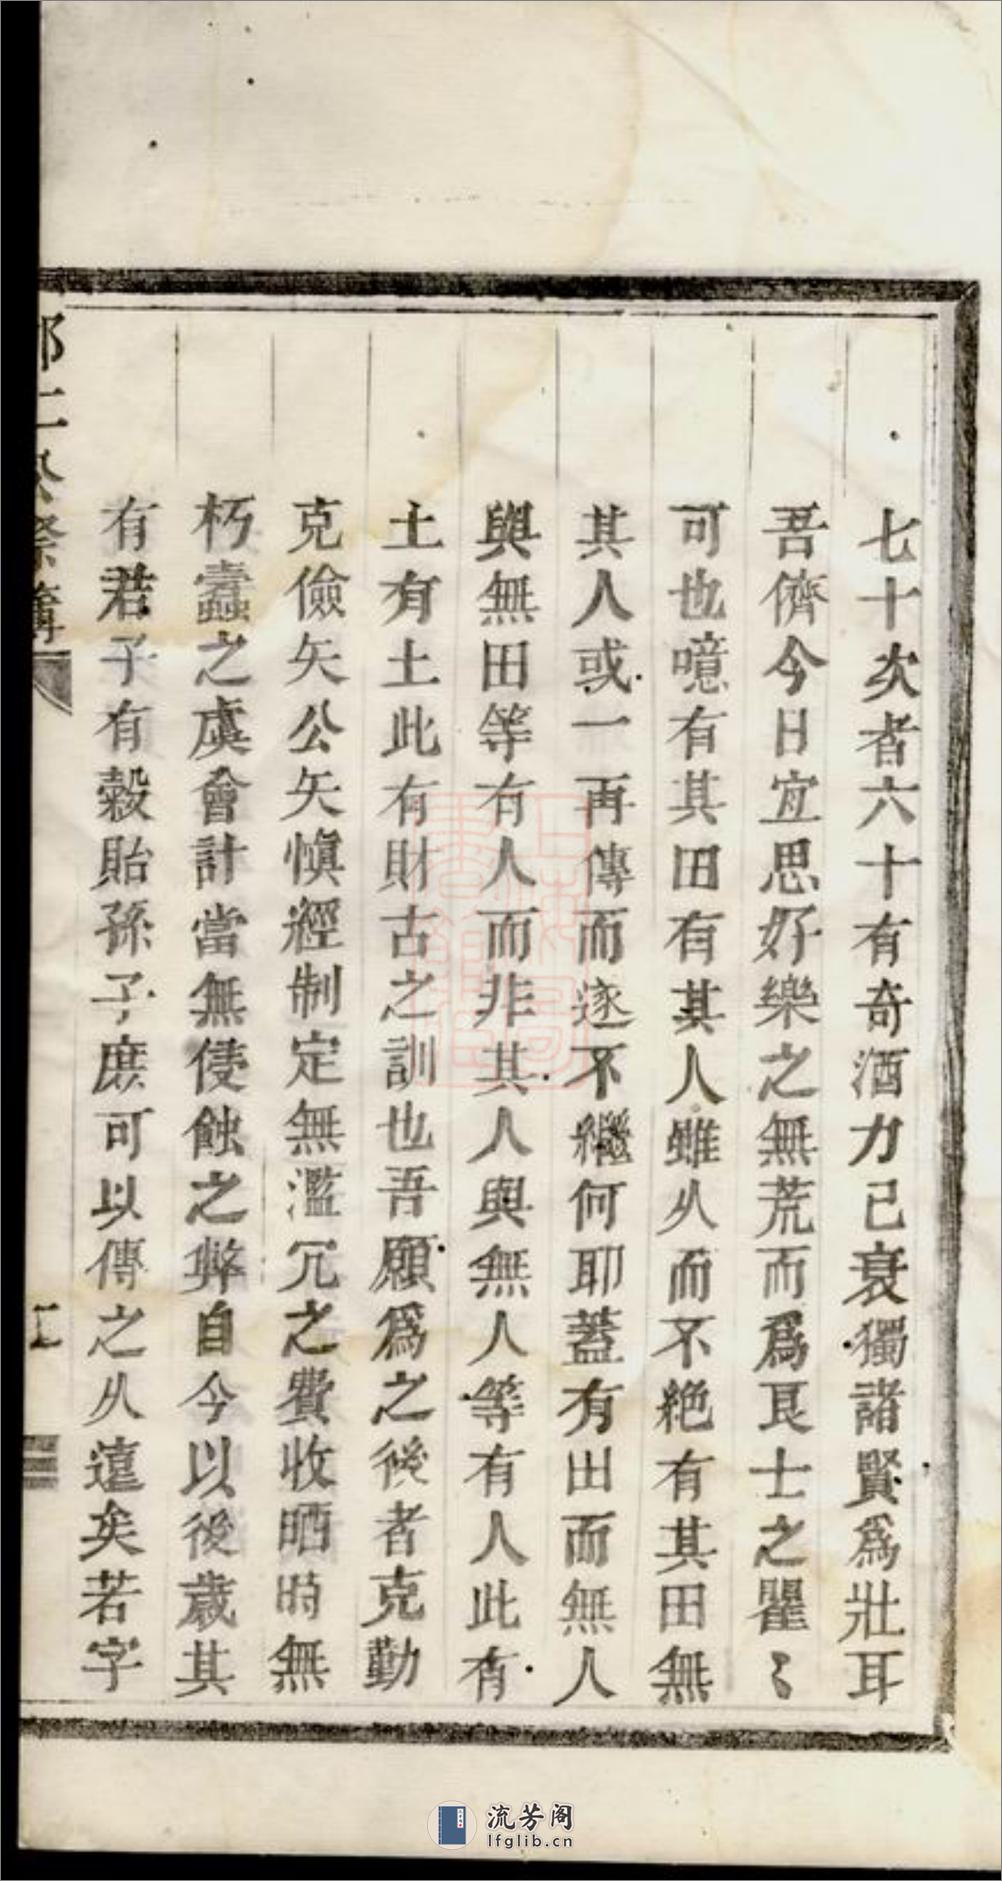 七十次者六十有奇酒力已衰獨諸賢爲壯耳
吾儕今日宜思好樂之無荒而爲良士之瞿〻
可也噫有其田有其人雖乆而不絶有其田無
其人或一再傳而遂不繼何耶蓋有田而無人
與無田等有人而非其人與無人等有人此有
土有土此有財古之訓也吾願爲之後者克勤
克儉矢公矢愼經制定無濫冗之費收晒時無
朽蠹之虞會計當無侵蝕之弊自今以後歲其
有君子有穀貽孫子庶可以傳之乆遠矣若字
仁公祭簿
流芳阁
lfglib.cn